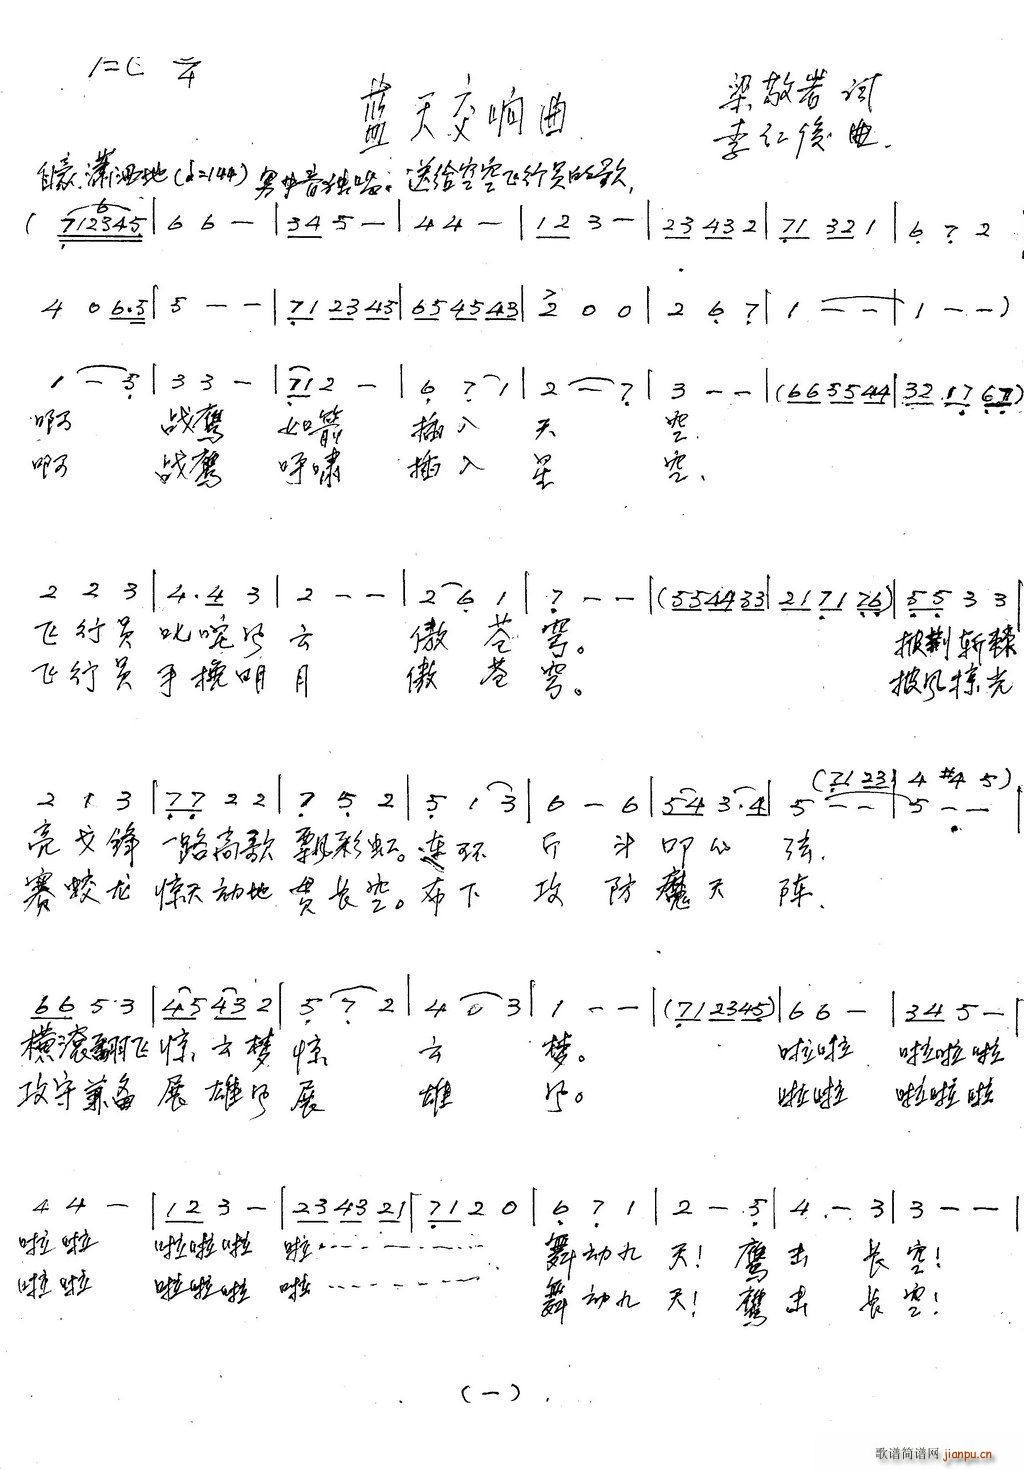 1=C 3/4
蓝天交响曲
梁敬岩 词
李仁俊 曲.
自豪.潇洒地(♩=144) 男中音独唱:送给空军飞行员的歌.
( 712345 | 6 6 - | 34 5 - | 4 4 - | 12 3 - | 23 43 2 | 71 32 1 | 6 7 2
4 0 6.5 | 5 - - | 71 23 45 | 65 45 43 | 2 0 0 | 2 6 7 | 1 - - | 1 - - )
1 - 5 | 3 3 - | 71 2 - | 6 7 1 | 2 - 7 | 3 - - | (66 55 44 | 32 17 67)
啊 战鹰 如箭 插入 天 空.
啊 战鹰 呼啸 插入 星 空.
2 2 3 | 4.4 3 | 2 - - | 2 6 1 | 7 - - | (55 44 33 | 21 71 76) | 55 3 3
飞行员 叱咤风云 傲苍穹。 披荆斩棘
飞行员 手挽明月 傲苍穹。 披风掠光
2 1 3 | 77 2 2 | 7 5 2 | 5 1 3 | 6 - 6 | 54 3.4 | 5 - - | 5 - - |
(71 23 | 4 #4 5)
亮戈锋 一路高歌 飘彩虹。连环 斤斗 叩心弦.
赛蛟龙 惊天动地 贯长空。布下 攻防 魔天阵.
66 5 3 | 45 43 2 | 5 7 2 | 4 0 3 | 1 - - | (71 23 45) | 6 6 - | 34 5 - |
横滚翻飞 惊云梦 惊 云 梦。 啦啦 啦啦啦
攻守兼备 展雄风 展 雄 风。 啦啦 啦啦啦
4 4 - | 12 3 - | 23 43 21 | 71 2 0 | 6 7 1 | 2 - 5 | 4 - 3 | 3 - - |
啦啦 啦啦啦 啦…… 舞动九天! 鹰击 长空!
啦啦 啦啦啦 啦…… 舞动九天! 鹰击 长空!
(一)
歌谱简谱网 jianpu.cn